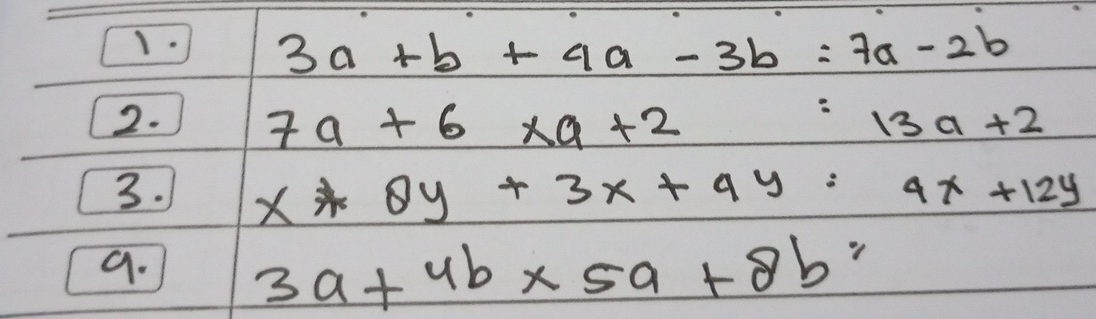 1. 3a + b + 4a - 3b : 7a - 2b
2. 7a + 6 x a + 2 : 13a + 2
3. x + 8y + 3x + 4y : 4x + 12y
4. 3a + 4b x 5a + 8b :